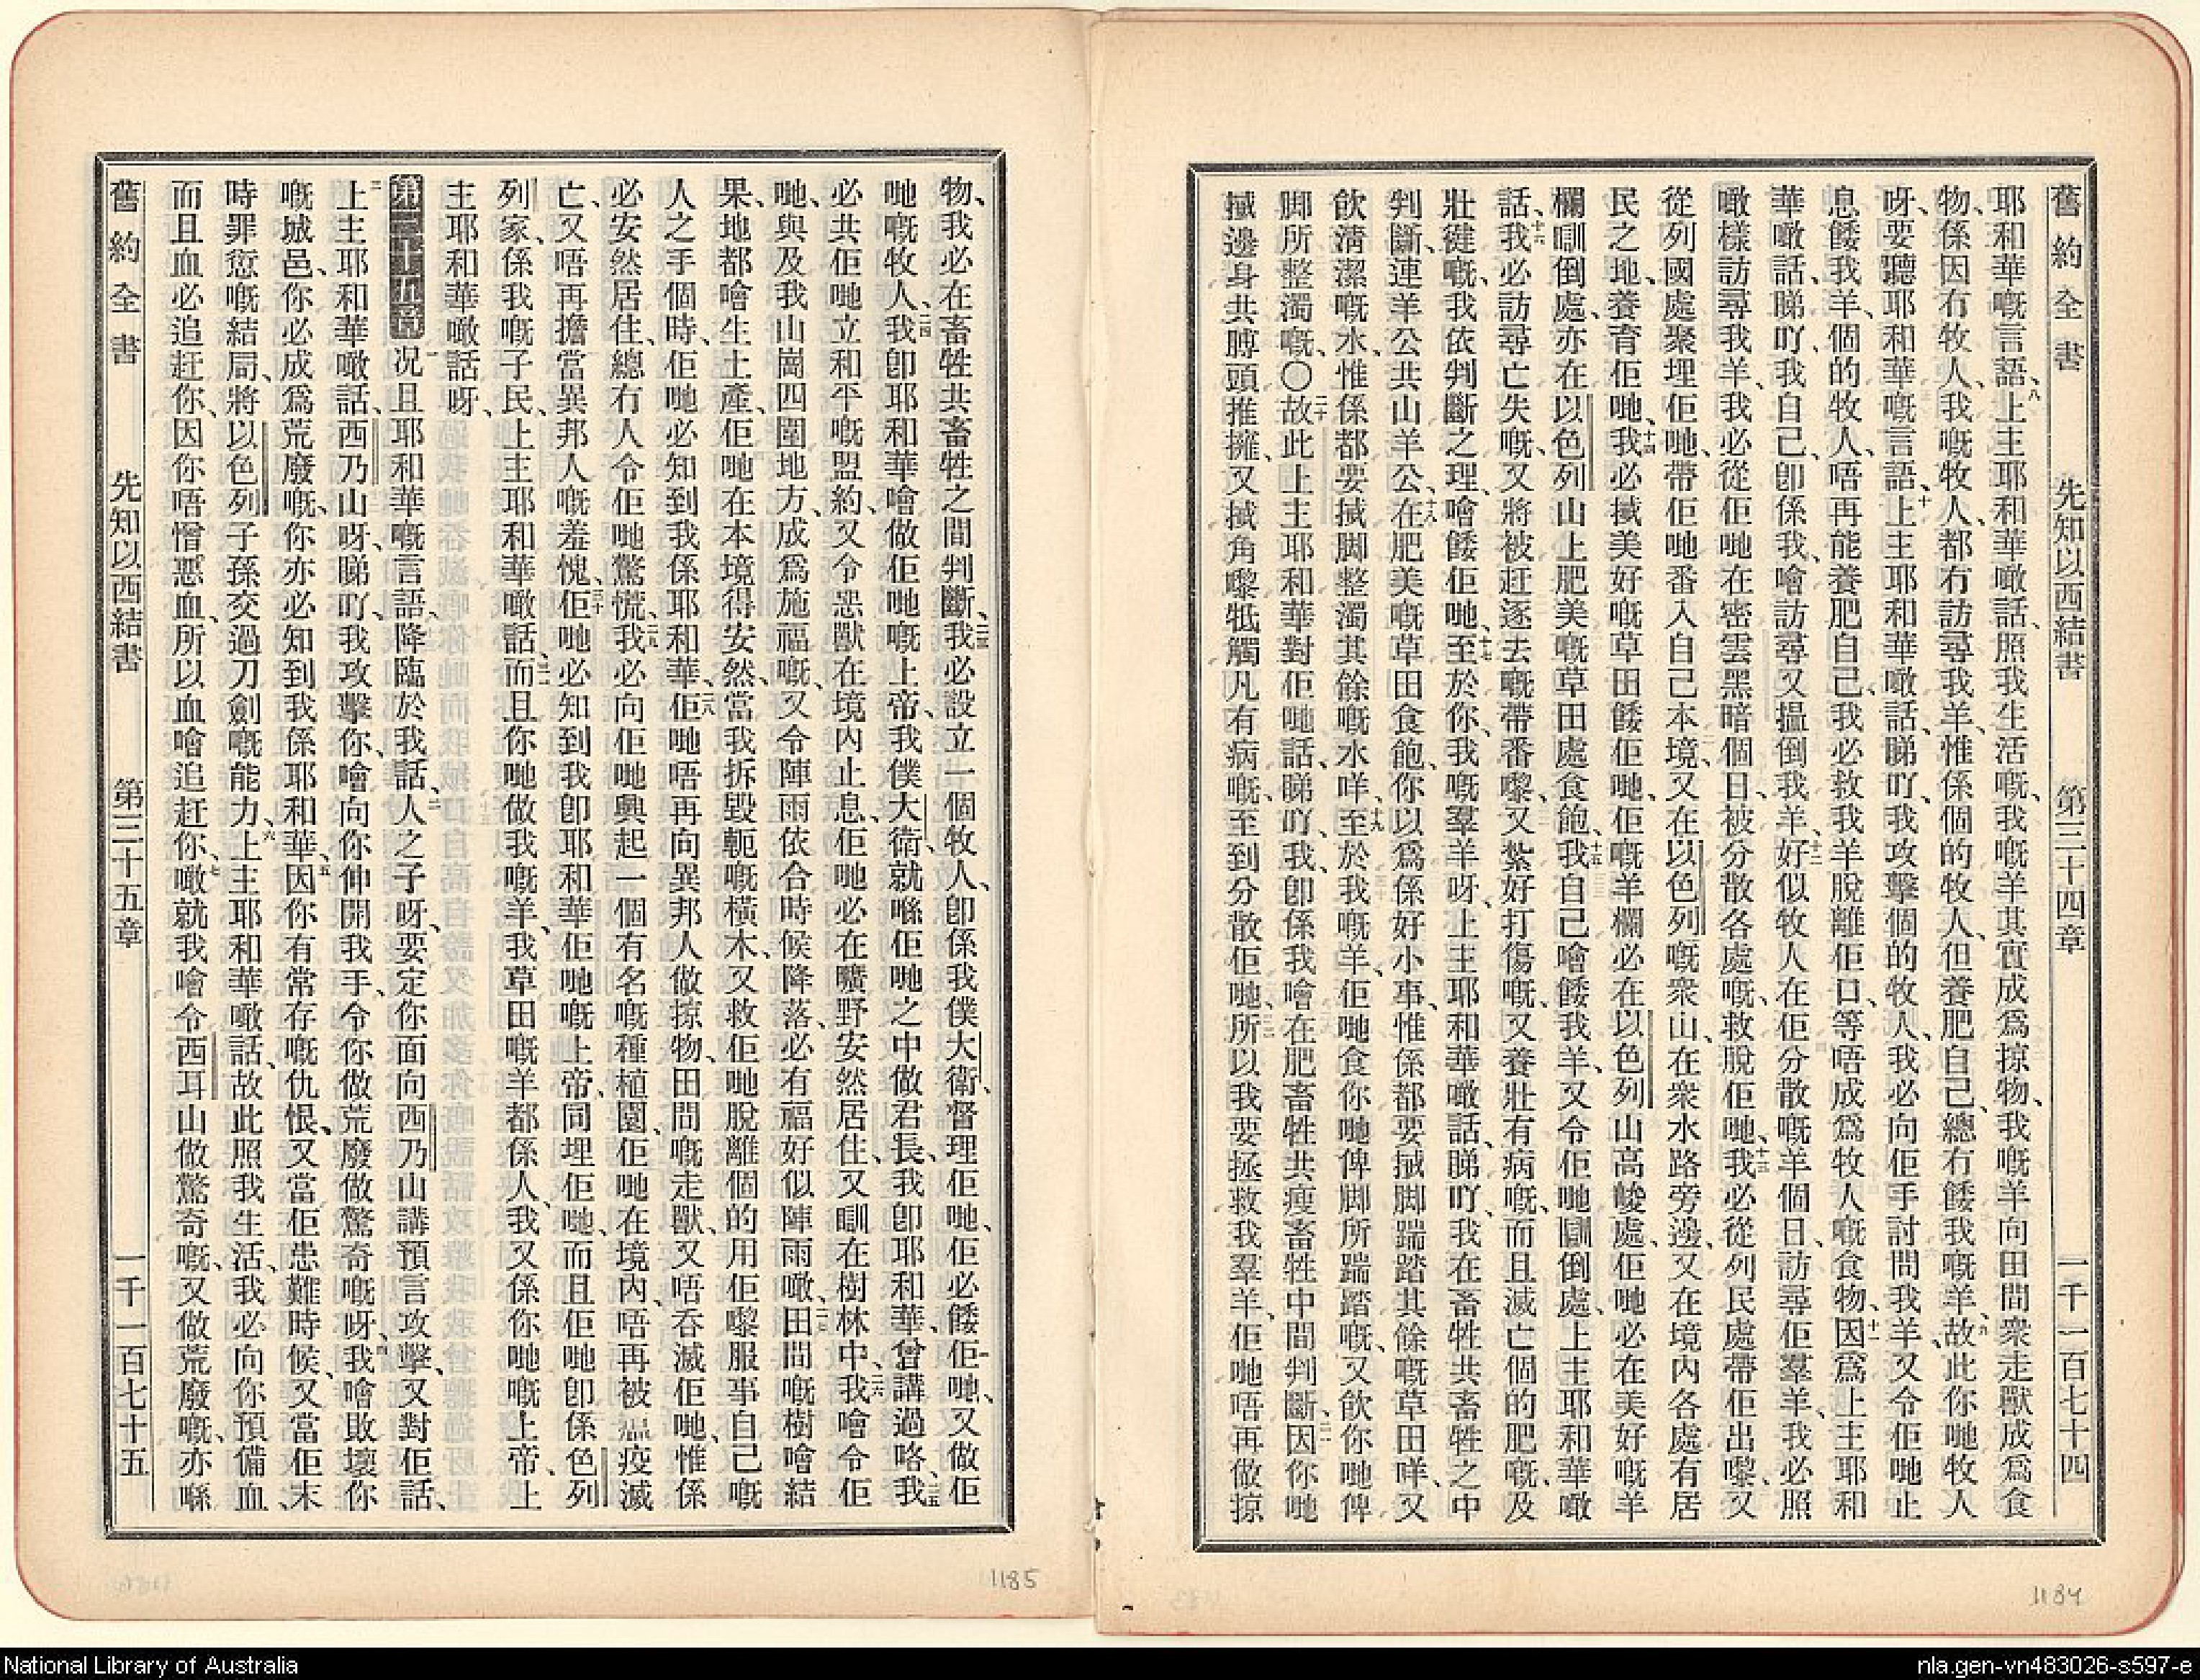 舊約全書 先知以西結書 第三十四章 一千一百七十四
耶和華嘅言語、八上主耶和華噉話、照我生活嘅、我嘅羊其實成爲掠物、我嘅羊向田間衆走獸成爲食
物、係因冇牧人、我嘅牧人、都冇訪尋我羊、惟係個的牧人、但養肥自己、總冇餧我嘅羊、九故此你哋牧人
呀、要聽耶和華嘅言語、十上主耶和華噉話、睇吖、我攻擊個的牧人、我必向佢手討問我羊、又令佢哋止
息餧我羊、個的牧人、唔再能養肥自己、我必救我羊脫離佢口、等唔成爲牧人嘅食物、十一因爲上主耶和
華噉話、睇吖、我自己、卽係我、噲訪尋又揾倒我羊、十二好似牧人在佢分散嘅羊個日、訪尋佢羣羊、我必照
噉樣訪尋我羊、我必從佢哋在密雲黑暗個日、被分散各處嘅、救脫佢哋、十三我必從列民處帶佢出嚟、又
從列國處聚埋佢哋、帶佢哋番入自己本境、又在以色列嘅衆山、在衆水路旁邊、又在境內各處有居
民之地、養育佢哋、十四我必搣美好嘅草田餧佢哋、佢嘅羊欄必在以色列山高峻處、佢哋必在美好嘅羊
欄瞓倒處、亦在以色列山上肥美嘅草田處食飽、十五我自己噲餧我羊、又令佢哋瞓倒處、上主耶和華噉
話、十六我必訪尋亡失嘅、又將被赶逐去嘅帶番嚟、又紮好打傷嘅、又養壯有病嘅、而且滅亡個的肥嘅、及
壯健嘅、我依判斷之理、噲餧佢哋、十七至於你、我嘅羣羊呀、上主耶和華噉話、睇吖、我在畜牲共畜牲之中
判斷、連羊公共山羊公、十八在肥美嘅草田食飽、你以爲係好小事、惟係都要搣脚踹踏其餘嘅草田咩、又
飲淸潔嘅水、惟係都要搣脚整濁其餘嘅水咩、十九至於我嘅羊、佢哋食你哋俾脚所踹踏嘅、又飲你哋俾
脚所整濁嘅、〇二十故此上主耶和華對佢哋話、睇吖、我、卽係我噲在肥畜牲共瘦畜牲中間判斷、二一因你哋
搣邊身共膊頭推擁、又搣角嚟牴觸凡有病嘅、至到分散佢哋、二二所以我要拯救我羣羊、佢哋唔再做掠
物、我必在畜牲共畜牲之間判斷、二三我必設立一個牧人、卽係我僕大衛、督理佢哋、佢必餧佢哋、又做佢
哋嘅牧人、二四我卽耶和華噲做佢哋嘅上帝、我僕大衛、就喺佢哋之中做君長、我卽耶和華、曾講過咯、二五我
必共佢哋立和平嘅盟約、又令惡獸在境內止息、佢哋必在曠野安然居住、又瞓在樹林中、二六我噲令佢
哋、與及我山崗四圍地方、成爲施福嘅、又令陣雨依合時候降落、必有福好似陣雨噉、二七田間嘅樹噲結
果、地都噲生土產、佢哋在本境得安然、當我拆毀軛嘅橫木、又救佢哋脫離個的用佢嚟服事自己嘅
人之手個時、佢哋必知到我係耶和華、二八佢哋唔再向異邦人做掠物、田間嘅走獸、又唔吞滅佢哋、惟係
必安然居住、總冇人令佢哋驚慌、二九我必向佢哋興起一個有名嘅種植園、佢哋在境內、唔再被瘟疫滅
亡、又唔再擔當異邦人嘅羞愧、三十佢哋必知到我卽耶和華佢哋嘅上帝、同埋佢哋、而且佢哋卽係色列
列家、係我嘅子民、上主耶和華噉話、三一而且你哋做我嘅羊、我草田嘅羊、都係人、我又係你哋嘅上帝、上
主耶和華噉話呀、
第三十五章 一况且耶和華嘅言語、降臨於我話、二人之子呀、要定你面向西乃山講預言攻擊、又對佢話、
三上主耶和華噉話、西乃山呀、睇吖、我攻擊你、噲向你伸開我手、令你做荒廢做驚奇嘅呀、四我噲敗壞你
嘅城邑、你必成爲荒廢嘅、你亦必知到我係耶和華、五因你有常存嘅仇恨、又當佢患難時候、又當佢末
時罪愆嘅結局、將以色列子孫交過刀劍嘅能力、六上主耶和華噉話、故此照我生活、我必向你預備血、
而且血必追赶你、因你唔憎惡血、所以血噲追赶你、七噉就我噲令西耳山做驚奇嘅、又做荒廢嘅、亦喺
舊約全書 先知以西結書 第三十五章 一千一百七十五
1185
1184
National Library of Australia
nla.gen-vn483026-s597-e